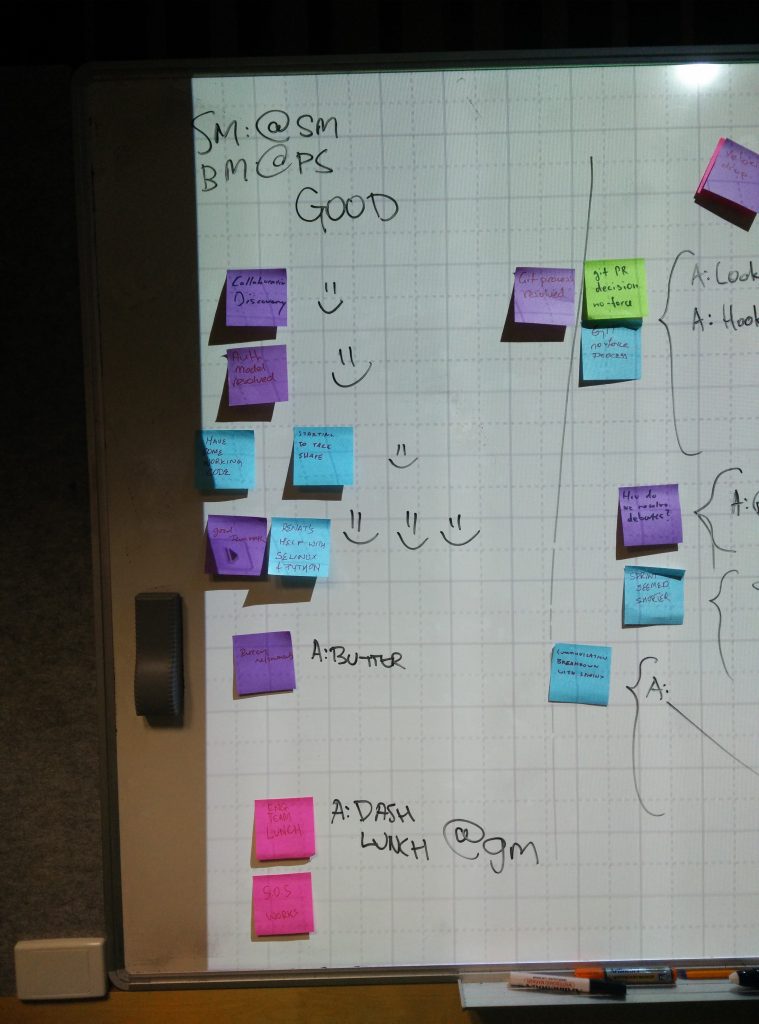 SM: @SM
BM @PS
GOOD
Collaboration
Discovery
Auth
model
resolved
HAVE
SOME
WORKING
CODE
STARTING
TO TAKE
SHAPE
good
team work
RENAT'S
HELP WITH
SELINUX
& PYTHON
A: BUTTER
ENG
TEAM
LUNCH
A: DASH
LUNCH @gm
S.O.S
WORKS
Git process
resolved
git PR
decision
no-force
GIT
no-force
PROCESS
A: Look
A: Hook
How do
we resolve
debates?
A:
SPRINT
SEEMED
SHORTER
COMMUNICATION
BREAKDOWN
WITH
A:
drop